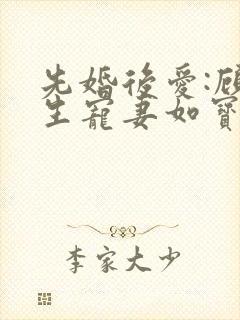 先婚後愛:顧
生寵妻如寶
李家大少